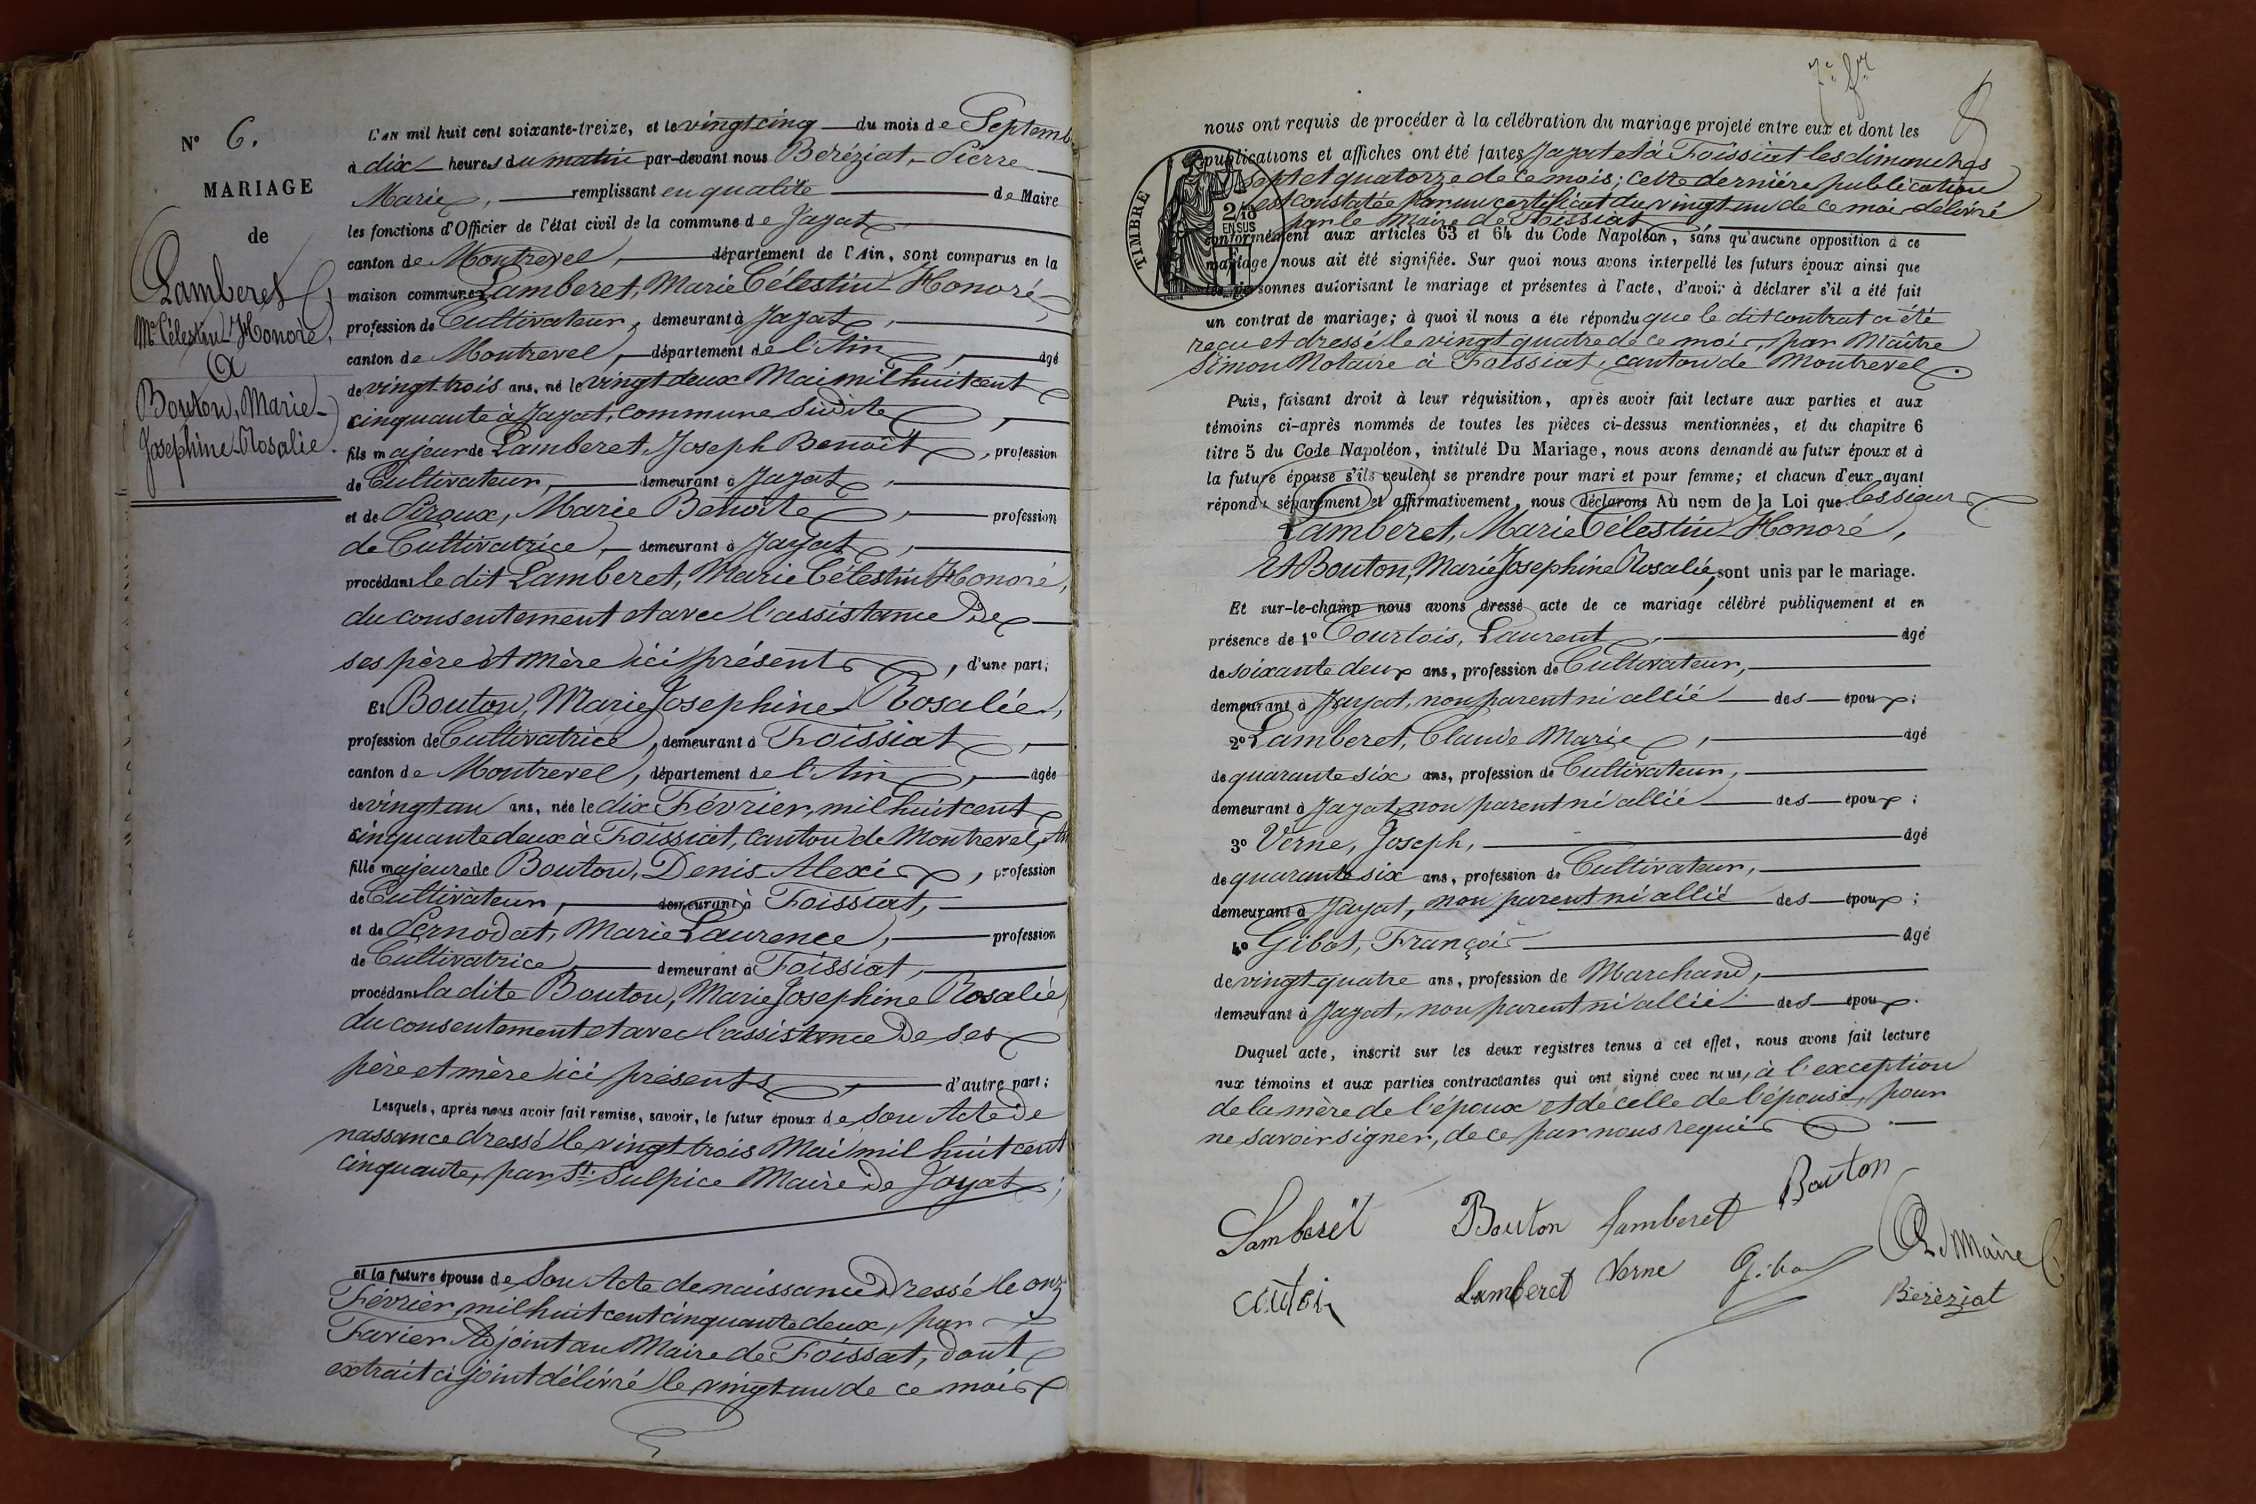 N° 6.
MARIAGE
de
Lamberet
Mie Célestin Honoré,
&
Bouton, Marie-
Josephine Rosalie.
L'AN mil huit cent soixante-treize, et le vingt cinq du mois de Septemb
à dix heures du matin par-devant nous Beréziat, Pierre
Marie, remplissant en qualité de Maire
les fonctions d'Officier de l'état civil de la commune de Jayat
canton de Montrevel, département de l'Ain, sont comparus en la
maison commune Lamberet, Marie Célestin Honoré
profession de Cultivateur, demeurant à Jayat,
canton de Montrevel, département de l'Ain, âgé
de vingt trois ans, né le vingt deux Mai mil huit cent
cinquante à Jayat, commune susdite,
fils majeur de Lamberet, Joseph Benoît, profession
de Cultivateur, demeurant à Jayat,
et de Piroux, Marie Benoîte, profession
de Cultivatrice, demeurant à Jayat,
procédant le dit Lamberet, Marie Célestin Honoré,
du consentement et avec l'assistance De
ses père et mère ici présents, d'une part;
Et Bouton, Marie Josephine Rosalie,
profession de Cultivatrice, demeurant à Foissiat,
canton de Montrevel, département de l'Ain, âgée
de vingt un ans, née le dix Février, mil huit cent
cinquante deux à Foissiat, canton de Montrevel, Ain
fille majeure de Bouton, Denis Alexis, profession
de Cultivateur, demeurant à Foissiat,
et de Pernodat, Marie Laurence, profession
de Cultivatrice demeurant à Foissiat,
procédant la dite Bouton, Marie Josephine Rosalie
du consentement et avec l'assistance De ses
père et mère ici présents, d'autre part;
Lesquels, après nous avoir fait remise, savoir, le futur époux de son Acte De
nassance dressé le vingt trois Mai mil huit cent
cinquante, par St. Sulpice Maire De Jayat;
et la future épouse de son Acte de naissance Dressé le onz
Février, mil huit cent cinquante deux, par
Favier Adjoint au Maire de Foissat, dont
extrait ci joint délivré le vingt un de ce mois
nous ont requis de procéder à la célébration du mariage projeté entre eux et dont les
publications et affiches ont été faites Jayat et à Foissiat les dimanches
sept et quatorze de ce mois; cette dernière publication
est constatée par un certificat du vingt un de ce mois délivré
par le Maire de Foissiat
conformément aux articles 63 et 64 du Code Napoléon, sans qu'aucune opposition à ce
mariage nous ait été signifiée. Sur quoi nous avons interpellé les futurs époux ainsi que
les personnes autorisant le mariage et présentes à l'acte, d'avoir à déclarer s'il a été fait
un contrat de mariage; à quoi il nous a été répondu que le dit contrat a été
reçu et dressé le vingt quatre de ce mois, par Maître
Simon Notaire à Foissiat, canton de Montrevel.
TIMBRE
2/10
EN SUS
Puis, faisant droit à leur réquisition, après avoir fait lecture aux parties et aux
témoins ci-après nommés de toutes les pièces ci-dessus mentionnées, et du chapitre 6
titre 5 du Code Napoléon, intitulé Du Mariage, nous avons demandé au futur époux et à
la future épouse s'ils veulent se prendre pour mari et pour femme; et chacun d'eux ayant
répondu séparément et affirmativement, nous déclarons Au nom de la Loi que les sieur
Lamberet, Marie Célestin Honoré,
Et Bouton, Marie Josephine Rosalie, sont unis par le mariage.
Et sur-le-champ nous avons dressé acte de ce mariage célébré publiquement et en
présence de 1° Courtois, Laurent, âgé
de soixante deux ans, profession de Cultivateur,
demeurant à Jayat, non parent ni allié des époux;
2° Lamberet, Claude Marie, âgé
de quarante six ans, profession de Cultivateur,
demeurant à Jayat, non parent ni allié des époux;
3° Verne, Joseph, âgé
de quarante six ans, profession de Cultivateur,
demeurant à Jayat, non parent ni allié des époux;
4° Gibot, François âgé
de vingt quatre ans, profession de Marchand,
demeurant à Jayat, non parent ni allié des époux.
Duquel acte, inscrit sur les deux registres tenus à cet effet, nous avons fait lecture
aux témoins et aux parties contractantes qui ont signé avec nous, à l'exception
de la mère de l'époux et de celle de l'épouse, pour
ne savoir signer, de ce par nous requis
Lamberet Bouton Lamberet Bouton
Lamberet Verne Le Maire
Béréziat